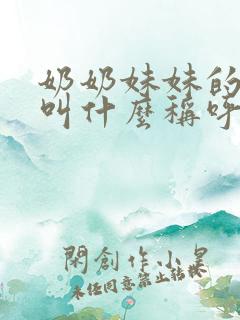 奶奶妹妹的
叫什麼稱呼
閑創作小星
未经同意禁止转载